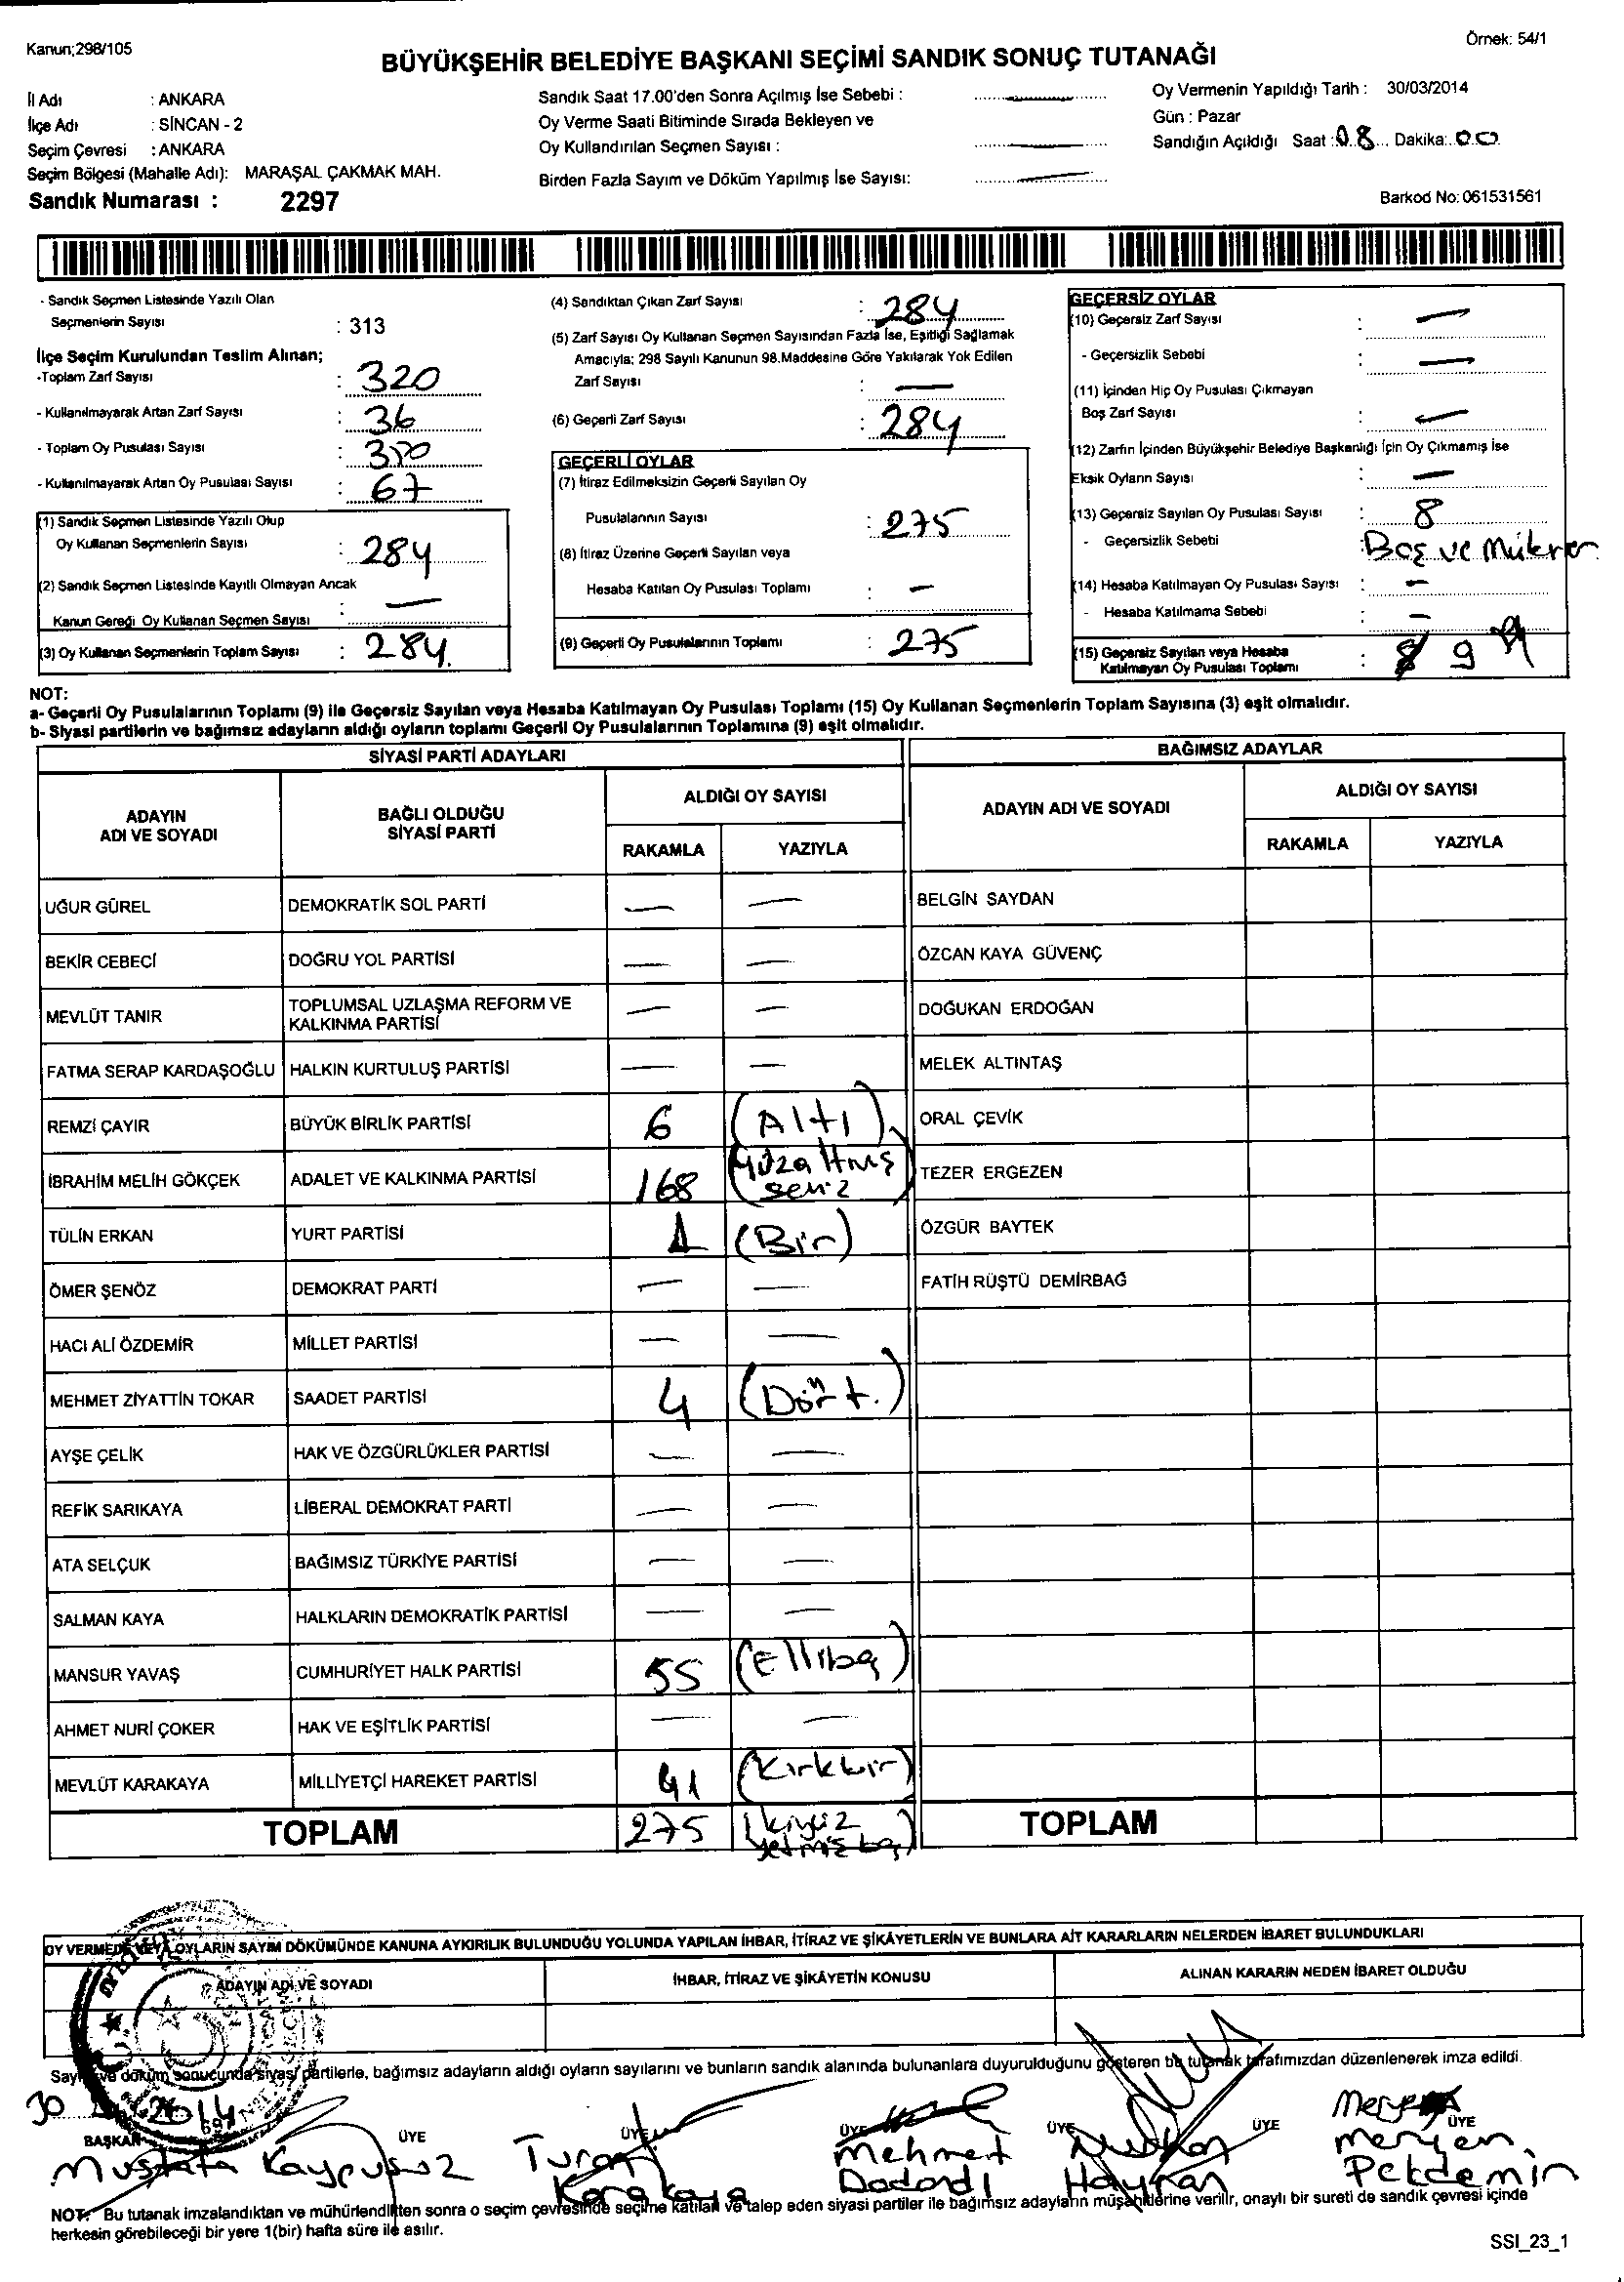 Kanun;298/105
Örnek: 54/1
BÜYÜKŞEHİR BELEDİYE BAŞKANI SEÇİMİ SANDIK SONUÇ TUTANAĞI
İl Adı : ANKARA
İlçe Adı : SİNCAN - 2
Seçim Çevresi : ANKARA
Seçim Bölgesi (Mahalle Adı): MARAŞAL ÇAKMAK MAH.
Sandık Numarası : 2297
Sandık Saat 17.00'den Sonra Açılmış İse Sebebi :
Oy Verme Saati Bitiminde Sırada Bekleyen ve
Oy Kullandırılan Seçmen Sayısı :
Birden Fazla Sayım ve Döküm Yapılmış İse Sayısı:
Oy Vermenin Yapıldığı Tarih : 30/03/2014
Gün : Pazar
Sandığın Açıldığı Saat : 08 Dakika: 00
Barkod No: 061531561
- Sandık Seçmen Listesinde Yazılı Olan
Seçmenlerin Sayısı : 313
İlçe Seçim Kurulundan Teslim Alınan;
-Toplam Zarf Sayısı : 320
- Kullanılmayarak Artan Zarf Sayısı : 36
- Toplam Oy Pusulası Sayısı :
- Kullanılmayarak Artan Oy Pusulası Sayısı : 67
(1) Sandık Seçmen Listesinde Yazılı Olup
Oy Kullanan Seçmenlerin Sayısı : 284
(2) Sandık Seçmen Listesinde Kayıtlı Olmayan Ancak
Kanun Gereği Oy Kullanan Seçmen Sayısı : —
(3) Oy Kullanan Seçmenlerin Toplam Sayısı : 284.
(4) Sandıktan Çıkan Zarf Sayısı : 284
(5) Zarf Sayısı Oy Kullanan Seçmen Sayısından Fazla İse, Eşitliği Sağlamak
Amacıyla; 298 Sayılı Kanunun 98.Maddesine Göre Yakılarak Yok Edilen
Zarf Sayısı : —
(6) Geçerli Zarf Sayısı : 284
GEÇERLİ OYLAR
(7) İtiraz Edilmeksizin Geçerli Sayılan Oy
Pusulalarının Sayısı : 275
(8) İtiraz Üzerine Geçerli Sayılan veya
Hesaba Katılan Oy Pusulası Toplamı : —
(9) Geçerli Oy Pusulalarının Toplamı : 275
GEÇERSİZ OYLAR
(10) Geçersiz Zarf Sayısı : —
- Geçersizlik Sebebi : —
(11) İçinden Hiç Oy Pusulası Çıkmayan
Boş Zarf Sayısı : —
(12) Zarfın İçinden Büyükşehir Belediye Başkanlığı İçin Oy Çıkmamış İse
Eksik Oyların Sayısı : —
(13) Geçersiz Sayılan Oy Pusulası Sayısı : 8
- Geçersizlik Sebebi : Boş ve
(14) Hesaba Katılmayan Oy Pusulası Sayısı : —
- Hesaba Katılmama Sebebi : —
(15) Geçersiz Sayılan veya Hesaba
Katılmayan Oy Pusulası Toplamı : 9
NOT:
a- Geçerli Oy Pusulalarının Toplamı (9) ile Geçersiz Sayılan veya Hesaba Katılmayan Oy Pusulası Toplamı (15) Oy Kullanan Seçmenlerin Toplam Sayısına (3) eşit olmalıdır.
b- Siyasi partilerin ve bağımsız adayların aldığı oyların toplamı Geçerli Oy Pusulalarının Toplamına (9) eşit olmalıdır.
SİYASİ PARTİ ADAYLARI
ADAYIN ADI VE SOYADI
BAĞLI OLDUĞU SİYASİ PARTİ
ALDIĞI OY SAYISI
RAKAMLA YAZIYLA
UĞUR GÜREL DEMOKRATİK SOL PARTİ — —
BEKİR CEBECİ DOĞRU YOL PARTİSİ — —
MEVLÜT TANIR TOPLUMSAL UZLAŞMA REFORM VE KALKINMA PARTİSİ — —
FATMA SERAP KARDAŞOĞLU HALKIN KURTULUŞ PARTİSİ — —
REMZİ ÇAYIR BÜYÜK BİRLİK PARTİSİ 6 (Altı)
İBRAHİM MELİH GÖKÇEK ADALET VE KALKINMA PARTİSİ 168 (yüzaltmış sekiz)
TÜLİN ERKAN YURT PARTİSİ 1 (Bir)
ÖMER ŞENÖZ DEMOKRAT PARTİ — —
HACI ALİ ÖZDEMİR MİLLET PARTİSİ — —
MEHMET ZİYATTİN TOKAR SAADET PARTİSİ 4 (Dört.)
AYŞE ÇELİK HAK VE ÖZGÜRLÜKLER PARTİSİ — —
REFİK SARIKAYA LİBERAL DEMOKRAT PARTİ — —
ATA SELÇUK BAĞIMSIZ TÜRKİYE PARTİSİ — —
SALMAN KAYA HALKLARIN DEMOKRATİK PARTİSİ — —
MANSUR YAVAŞ CUMHURİYET HALK PARTİSİ 55 (Ellibeş)
AHMET NURİ ÇOKER HAK VE EŞİTLİK PARTİSİ — —
MEVLÜT KARAKAYA MİLLİYETÇİ HAREKET PARTİSİ 41 (Kırkbir)
TOPLAM 275 (ikiyüz yetmiş beş)
BAĞIMSIZ ADAYLAR
ADAYIN ADI VE SOYADI
ALDIĞI OY SAYISI
RAKAMLA YAZIYLA
BELGİN SAYDAN
ÖZCAN KAYA GÜVENÇ
DOĞUKAN ERDOĞAN
MELEK ALTINTAŞ
ORAL ÇEVİK
TEZER ERGEZEN
ÖZGÜR BAYTEK
FATİH RÜŞTÜ DEMİRBAĞ
TOPLAM
OY VERMEDE VEYA OYLARIN SAYIM DÖKÜMÜNDE KANUNA AYKIRILIK BULUNDUĞU YOLUNDA YAPILAN İHBAR, İTİRAZ VE ŞİKÂYETLERİN VE BUNLARA AİT KARARLARIN NELERDEN İBARET BULUNDUKLARI
ADAYIN ADI VE SOYADI
İHBAR, İTİRAZ VE ŞİKÂYETİN KONUSU
ALINAN KARARIN NEDEN İBARET OLDUĞU
Sayım ve döküm sonucunda siyasi partilerle, bağımsız adayların aldığı oyların sayılarını ve bunların sandık alanında bulunanlara duyurulduğunu gösteren bu tutanak tarafımızdan düzenlenerek imza edildi.
30 2014
BAŞKAN ÜYE ÜYE ÜYE ÜYE ÜYE ÜYE
Mustafa Kaypusuz
Turan Karakaya
Mehmet Dadandı
Hayran
Meryem Pekdemir
NOT: Bu tutanak imzalandıktan ve mühürlendikten sonra o seçim çevresinde seçime katılan ve talep eden siyasi partiler ile bağımsız adayların müşahitlerine verilir, onaylı bir sureti de sandık çevresi içinde
herkesin görebileceği bir yere 1(bir) hafta süre ile asılır.
SSI_23_1